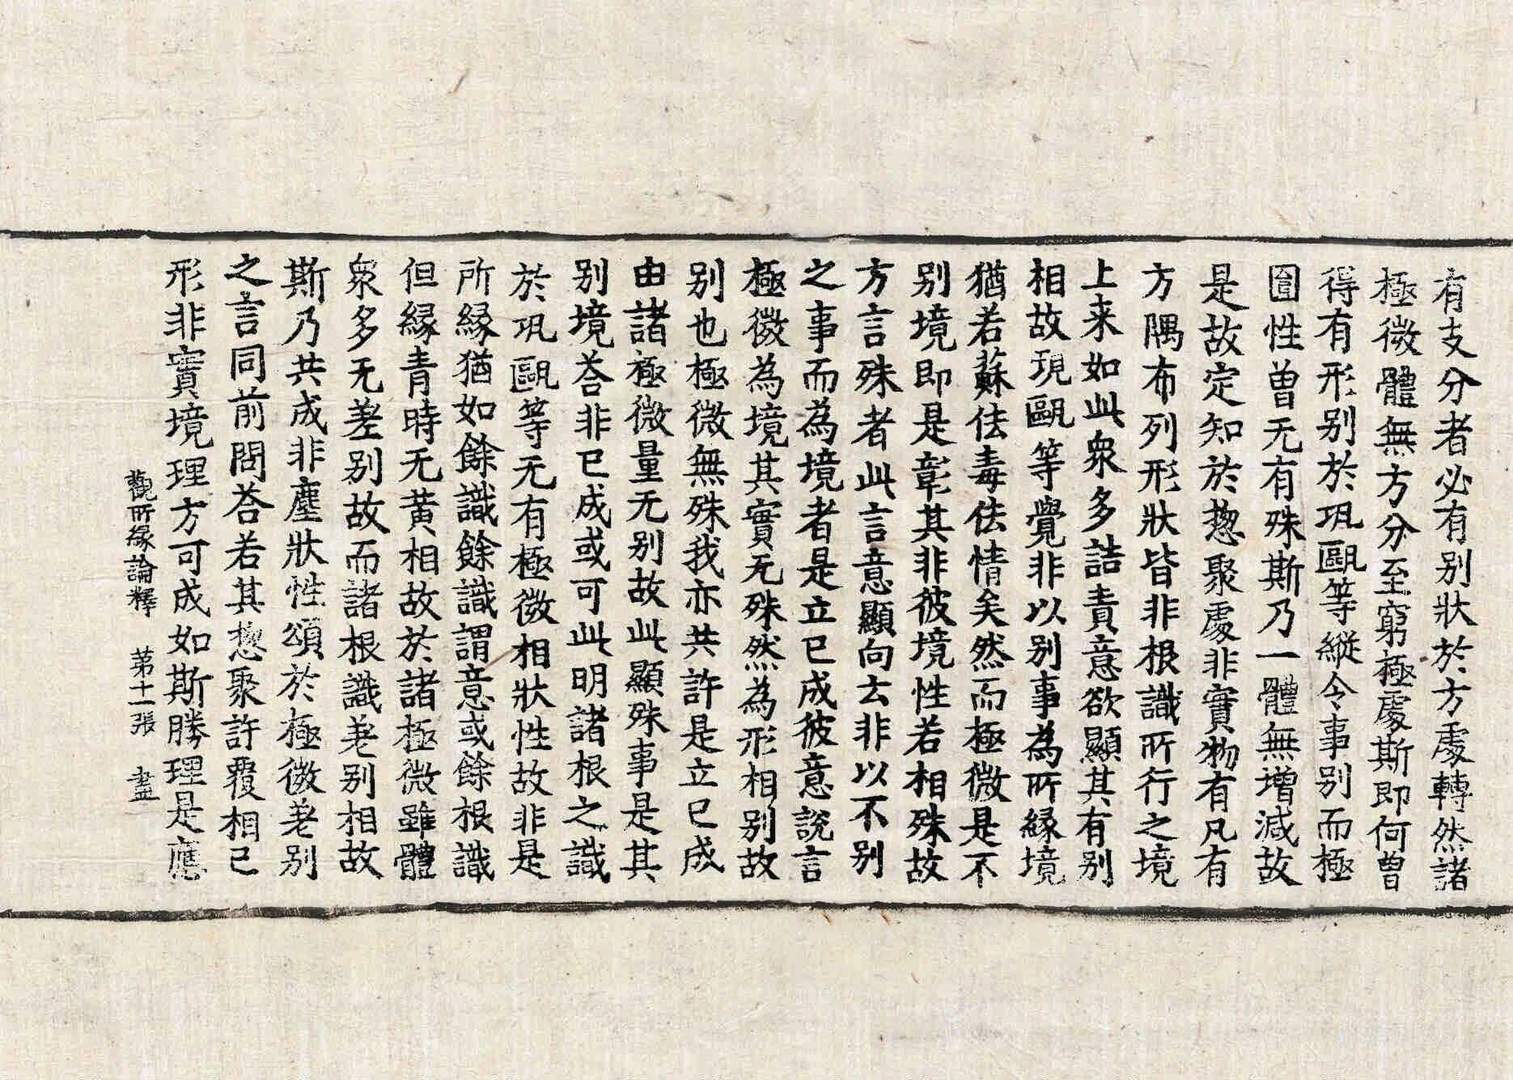 有支分者必有别狀於方處轉然諸
極微體無方分至窮極處斯即何曾
得有形别於瓨甌等縱令事别而極
圓性曾无有殊斯乃一體無增減故
是故定知於揔聚處非實物有凡有
方隅布列形狀皆非根識所行之境
上来如此衆多詰責意欲顯其有别
相故現甌等覺非以别事為所縁境
猶若蘇佉毒佉情矣然而極微是不
别境即是彰其非彼境性若相殊故
方言殊者此言意顯向去非以不别
之事而為境者是立已成彼意說言
極微為境其實无殊然為形相别故
别也極微無殊我亦共許是立已成
由諸極微量无别故此顯殊事是其
别境荅非已成或可此明諸根之識
於瓨甌等无有極微相狀性故非是
所縁猶如餘識餘識謂意或餘根識
但縁青時无黄相故於諸極微雖體
衆多无差别故而諸根識差别相故
斯乃共成非塵狀性頌於極微差别
之言同前問荅若其揔聚許覆相已
形非實境理方可成如斯勝理是應
觀所縁論釋 第十一張 盡